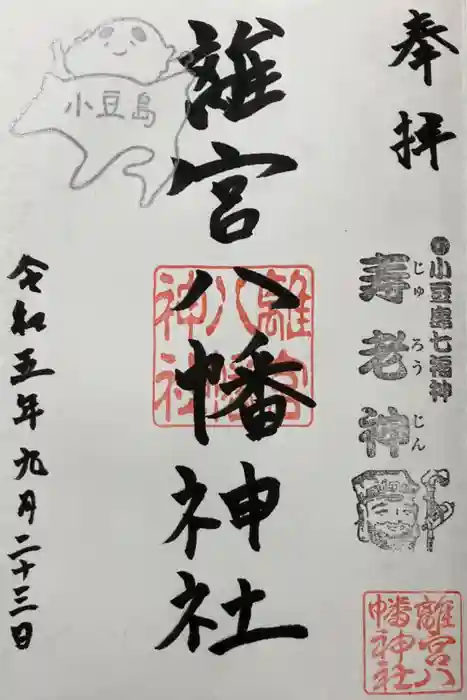 奉拝
小豆島七福神
寿老神
じゅろうじん
離宮八幡神社
離宮八幡神社
離宮八幡神社
小豆島
令和五年九月二十三日